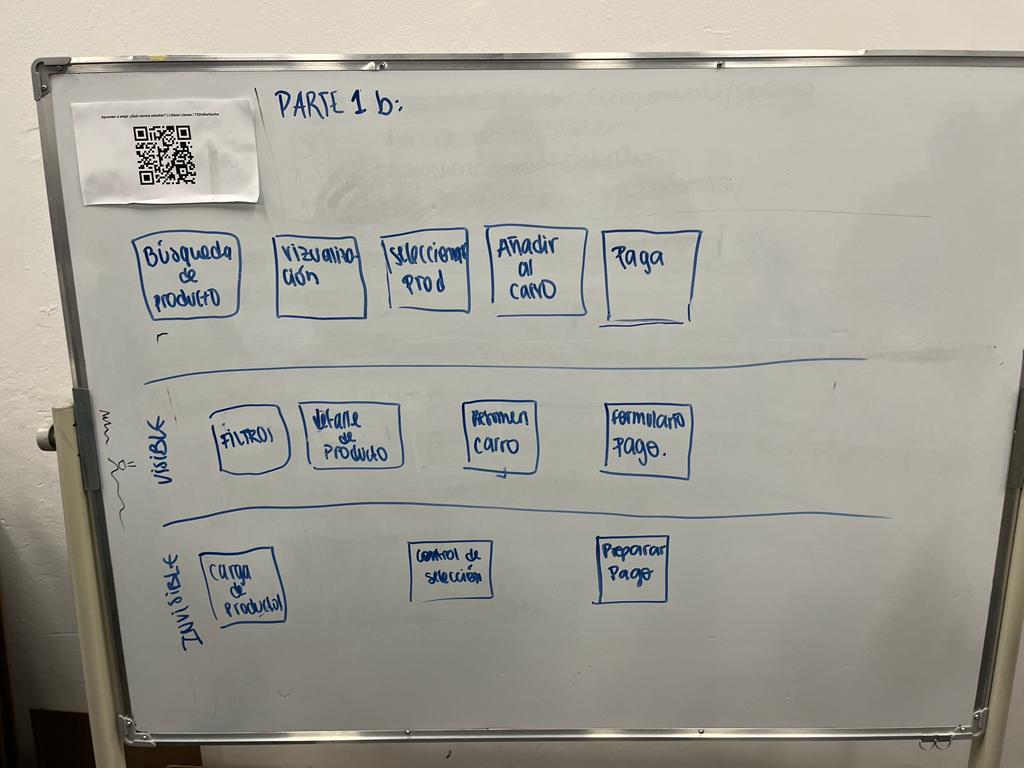 Aprender a elegir ¿Qué carrera estudiar? | Liliana Llamas | TEDxBariloche
PARTE 1 b:
Búsqueda
de
producto
Vizualiza-
ción
Seleccionar
Prod
Añadir
al
carro
Paga
VISIBLE
FILTROS
detalle
de
Producto
Resumen
carro
Formulario
Pago.
INVISIBLE
Carga
de
productos
Control de
selección
Preparar
Pago